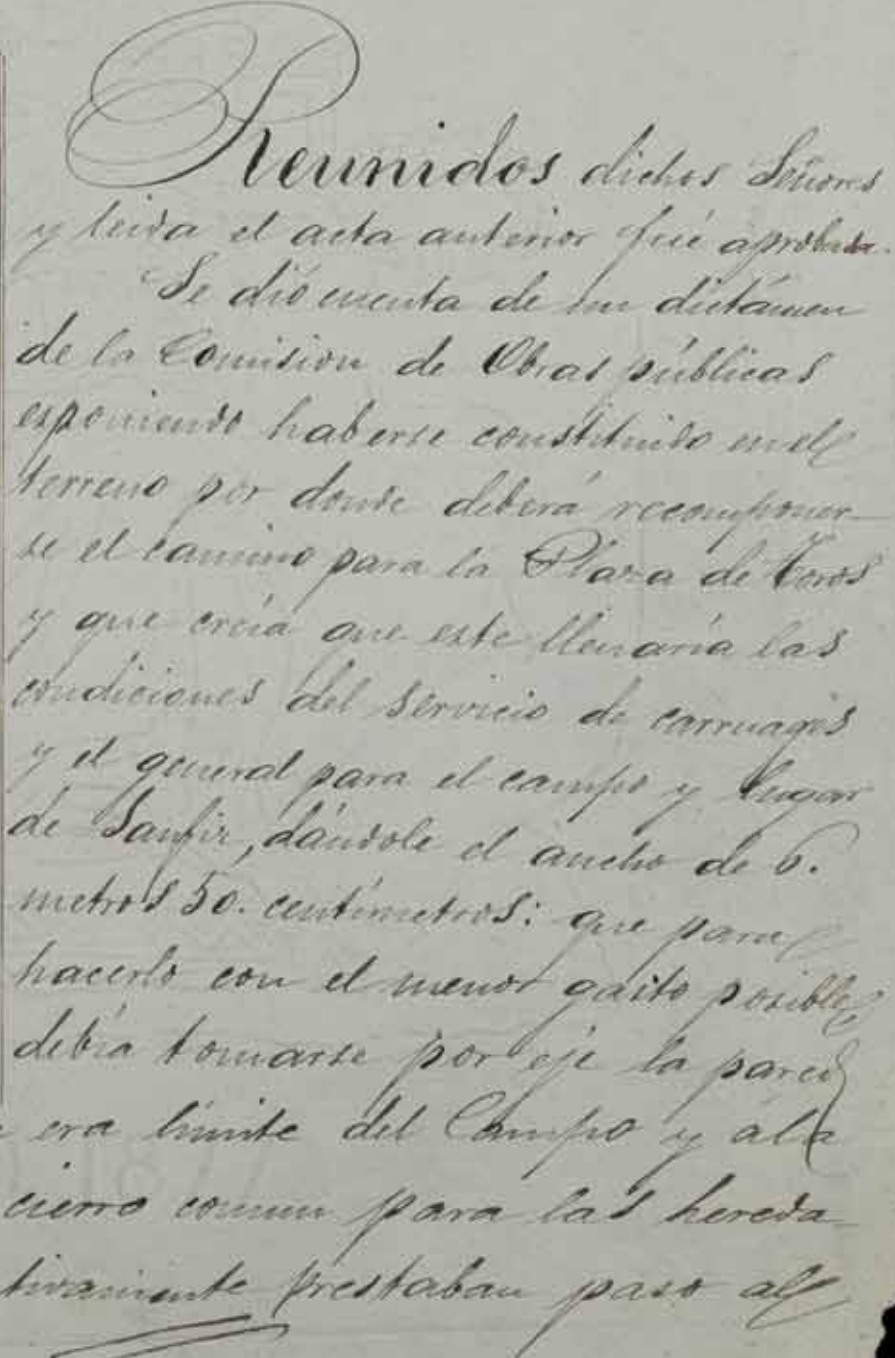 Reunidos dichos Señores
y leida el acta anterior fué aprobada.
Se dió cuenta de un dictámen
de la Comision de Obras públicas
esponiendo haberse constituido en el
terreno por donde deberá recomponer-
se el camino para la Plaza de toros
y que creía que este llenaría las
condiciones del servicio de carruages
y el general para el campo y lugar
de Sanfiz, dándole el ancho de 6.
metros 50. centímetros: que para
hacerlo con el menor gasto posible
debía tomarse por eje la pared
era límite del Campo y á la
cierro comun para las hereda
tivamente prestaban paso al